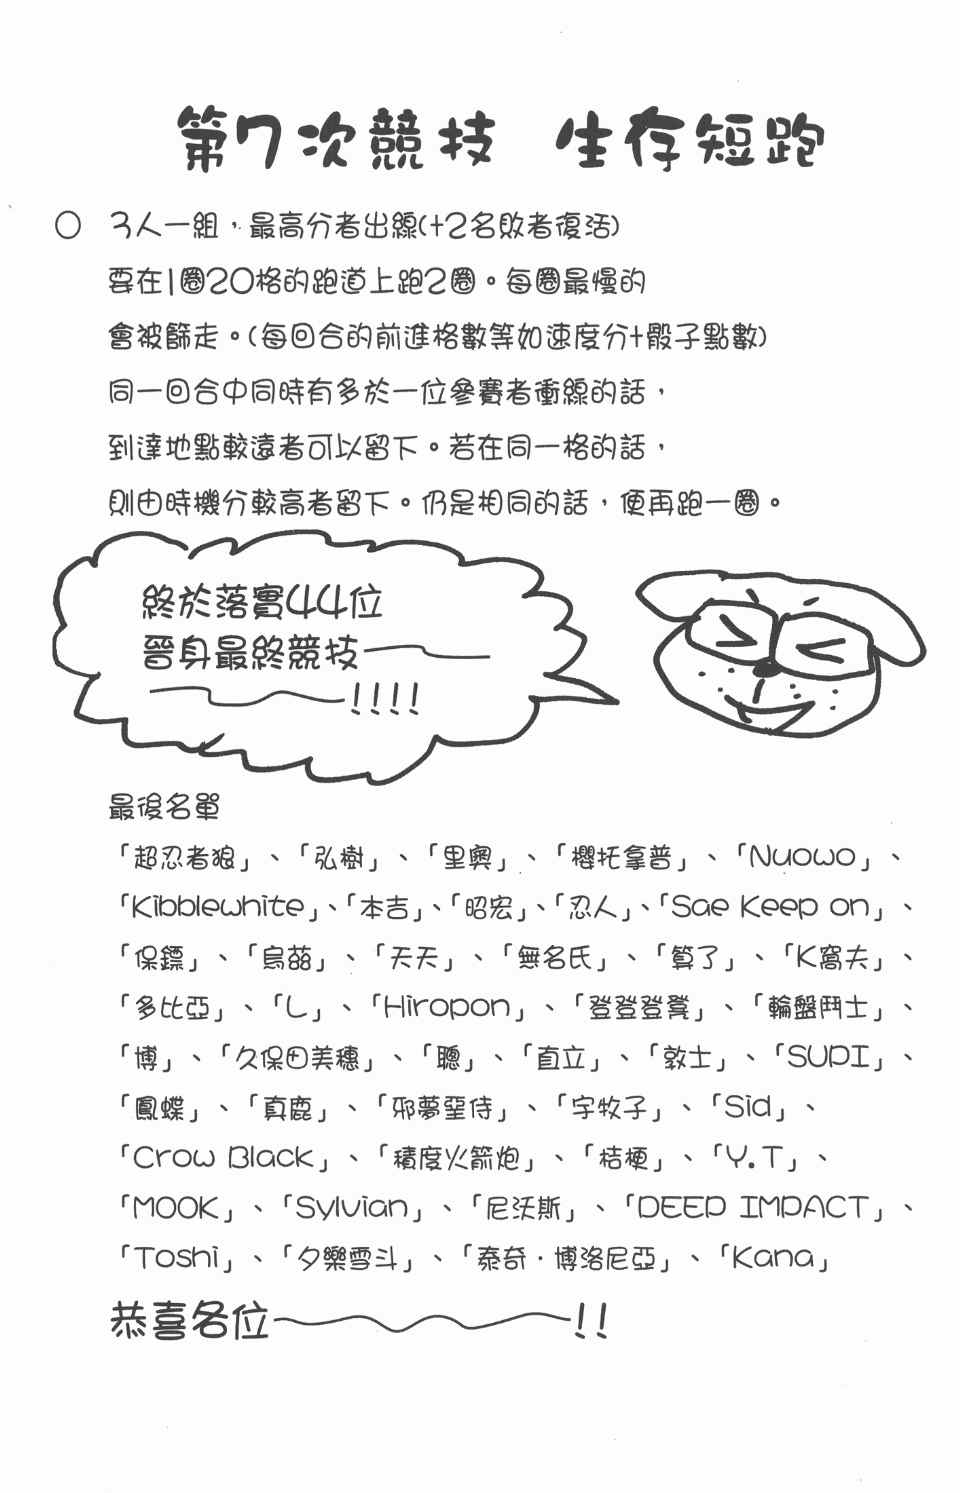 第7次競技 生存短跑
○ 3人一組，最高分者出線(+2名敗者復活)
要在1圈20格的跑道上跑2圈。每圈最慢的
會被篩走。(每回合的前進格數等如速度分+骰子點數)
同一回合中同時有多於一位參賽者衝線的話，
到達地點較遠者可以留下。若在同一格的話，
則由時機分較高者留下。仍是相同的話，便再跑一圈。
終於落實44位
晉身最終競技
!!!!
最後名單
「超忍者狼」、「弘樹」、「里奧」、「櫻托拿普」、「Nuowo」、
「Kibblewhite」、「本吉」、「昭宏」、「忍人」、「Sae Keep on」、
「保鏢」、「烏茲」、「天天」、「無名氏」、「算了」、「K窩夫」、
「多比亞」、「L」、「Hiropon」、「登登登凳」、「輪盤鬥士」、
「博」、「久保田美穗」、「聰」、「直立」、「敦士」、「SUPI」、
「鳳蝶」、「真鹿」、「邪夢堊侍」、「字牧子」、「Sid」、
「Crow Black」、「積度火箭炮」、「桔梗」、「Y.T」、
「MOOK」、「Sylvian」、「尼沃斯」、「DEEP IMPACT」、
「Toshi」、「夕樂雪斗」、「泰奇·博洛尼亞」、「Kana」
恭喜各位!!